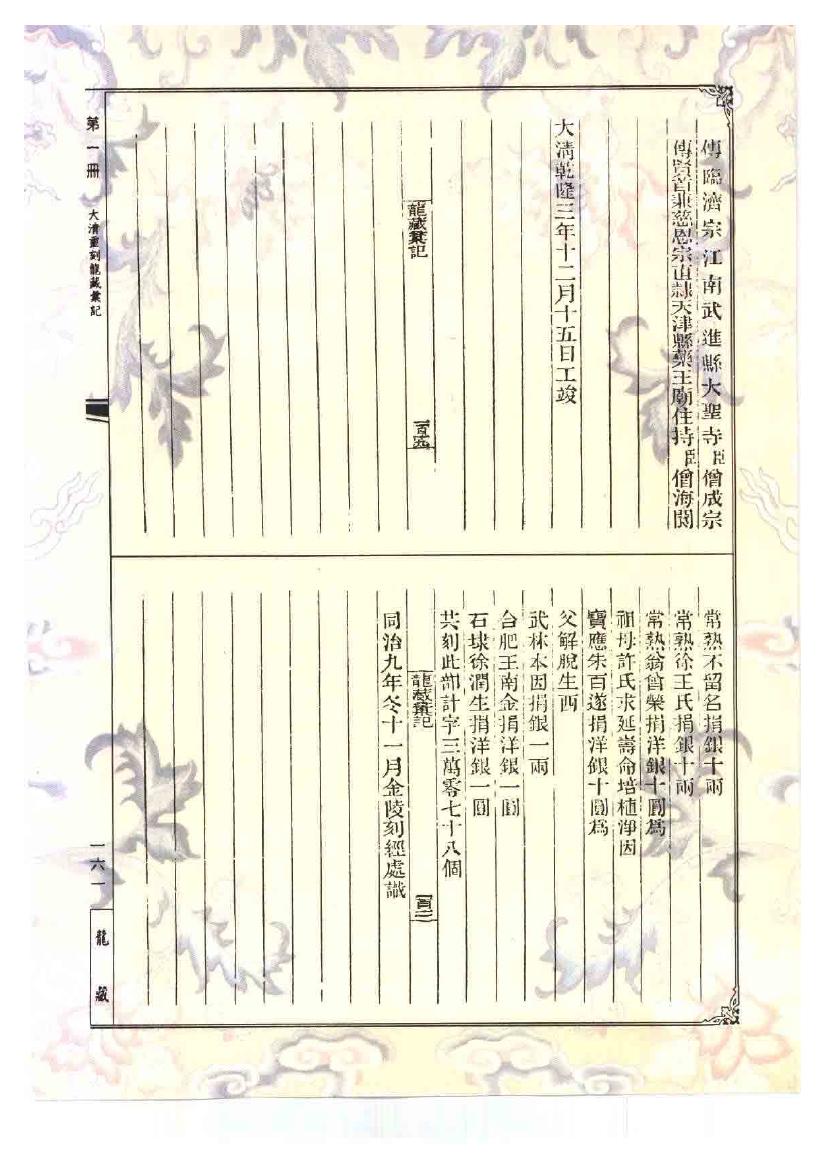 傳臨濟宗江南武進縣大聖寺臣僧成宗
傳賢首兼慈恩宗直隸天津縣藥王廟住持臣僧海闊
大清乾隆三年十二月十五日工竣
龍藏彙記
常熟不留名捐銀十兩
常熟徐王氏捐銀十兩
常熟翁曾榮捐洋銀十圓爲
祖母許氏求延壽命培植淨因
寶應朱百遂捐洋銀十圓爲
父解脫生西
武林本因捐銀一兩
合肥王南金捐洋銀一圓
石埭徐潤生捐洋銀一圓
共刻此部計字三萬零七十八個
龍藏彙記
同治九年冬十一月金陵刻經處識
第一冊
大清重刻龍藏彙記
一六一
龍藏